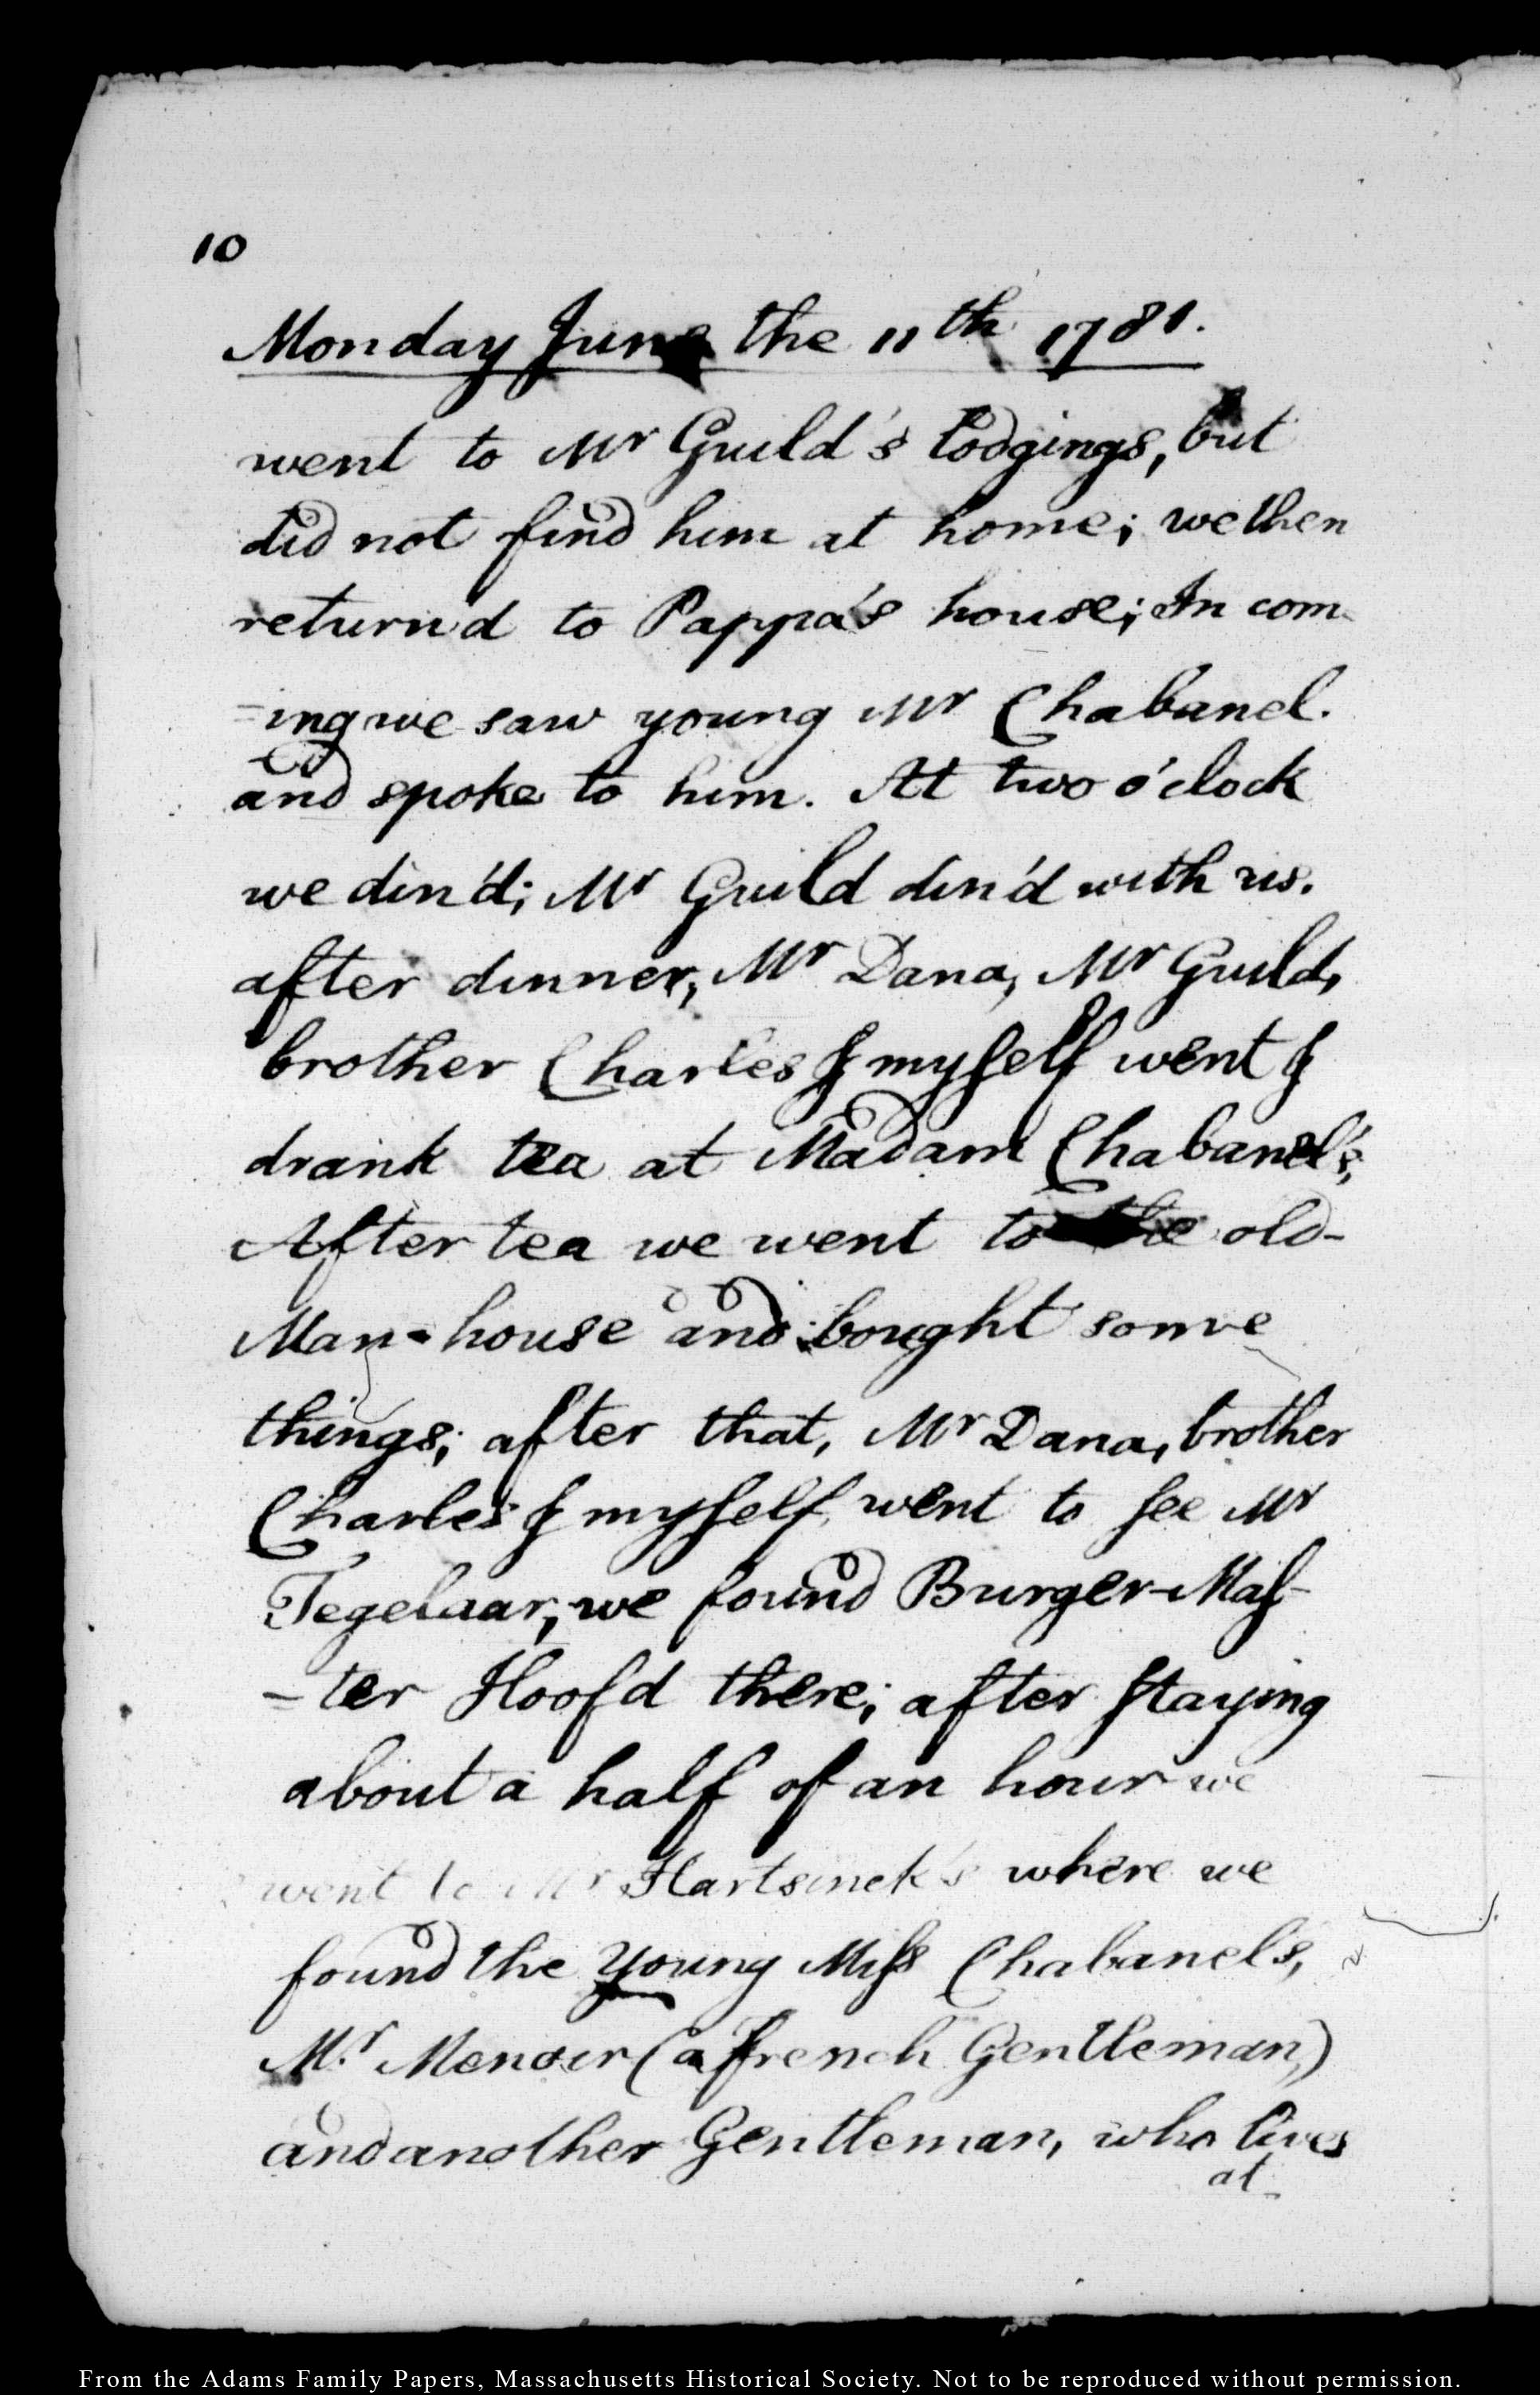 10
Monday June the 11th 1781.
went to Mr Guild's lodgings, but
did not find him at home; we then
return'd to Pappa's house; In com
-ing we saw young Mr Chabanel.
and spoke to him. At two o'clock
we din'd; Mr Guild din'd with us.
after dinner, Mr Dana, Mr Guild,
brother Charles & myself went &
drank tea at Madam Chabanel's,
After tea we went to the old-
Man-house and bought some
things; after that, Mr Dana, brother
Charles & myself, went to see Mr
Tegelaar, we found Burger-Mas-
-ter Hoofd there; after staying
about a half of an hour we
went to Mr Hartsinck's where we
found the Young Miss Chabanel's,
M.r Menoir (a french Gentleman)
and another Gentleman, who lives
at
From the Adams Family Papers, Massachusetts Historical Society. Not to be reproduced without permission.